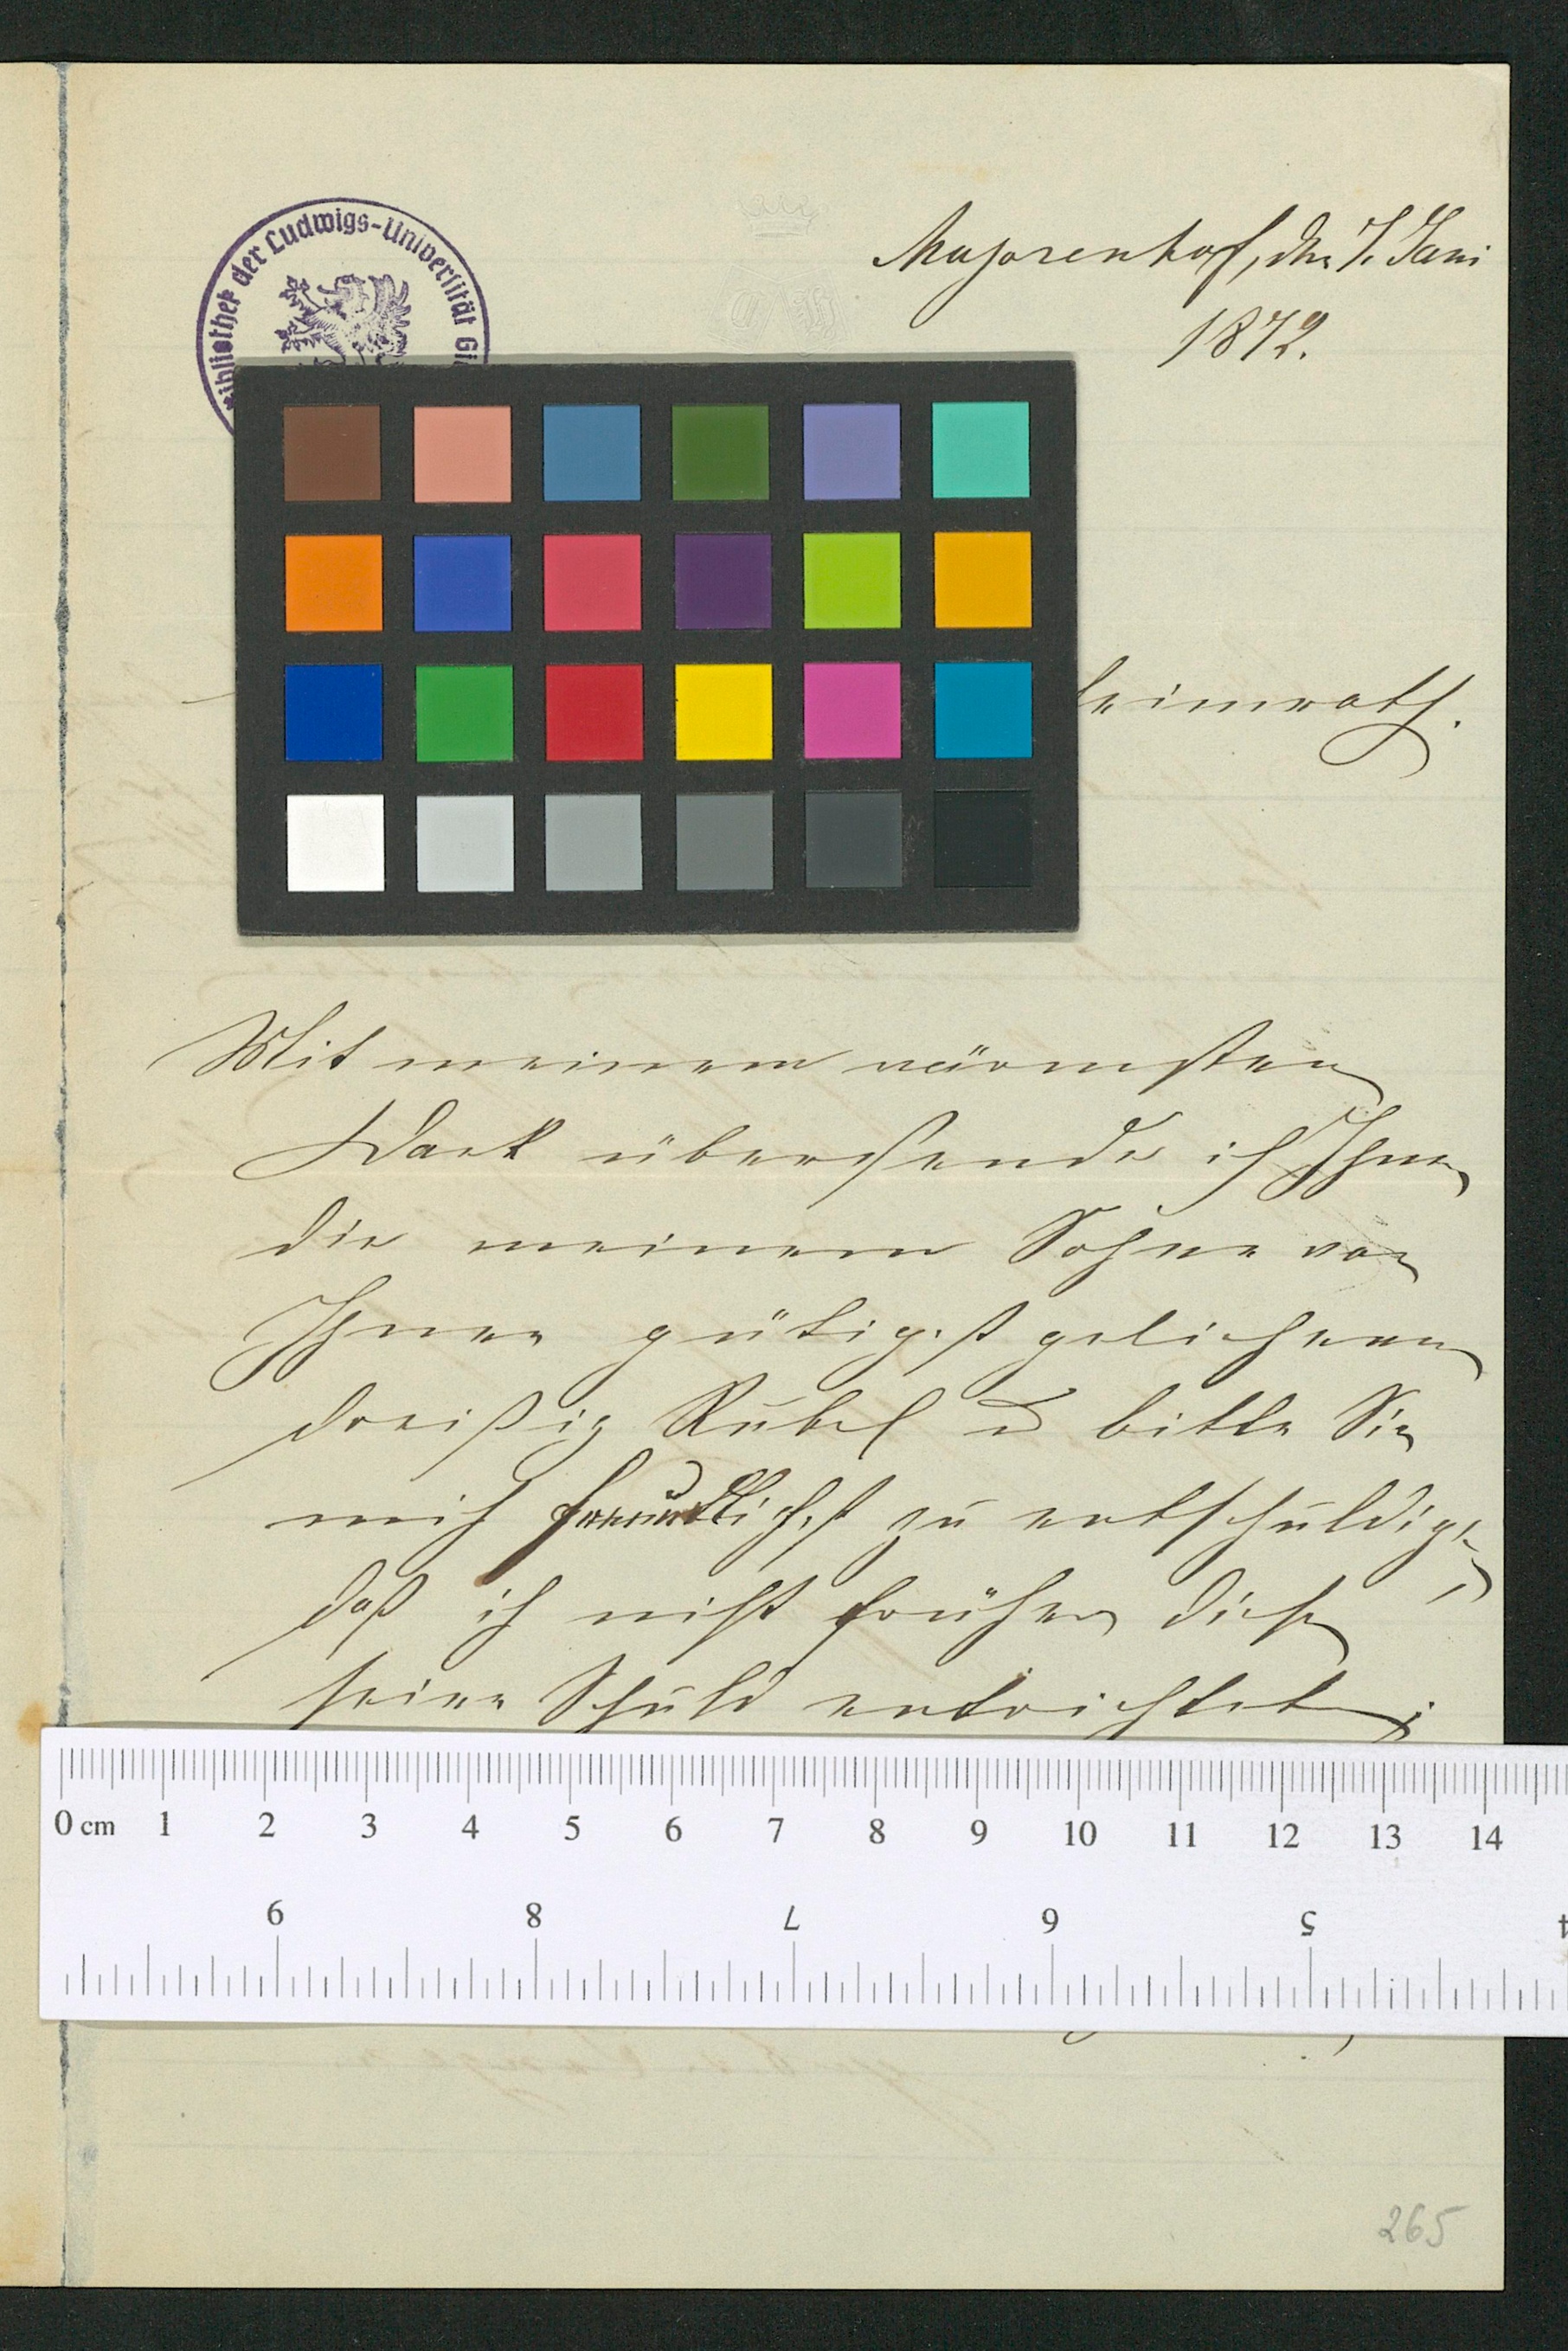 Bibliothek der Ludwigs-Universität Gi
Majorenhof, den 7. Juni
1872.
heimrath.
Mit meinem wärmsten
Dank übersende ich Ihnen
die meinem Sohne von
Ihnen gütigst geliehenen
dreißig Rubel u bitte Sie
mich freundlichst zu entschuldigen,
daß ich nicht früher diese
seine Schuld entrichtet;
0 cm 1 2 3 4 5 6 7 8 9 10 11 12 13 14
9 8 7 6 5 4
265